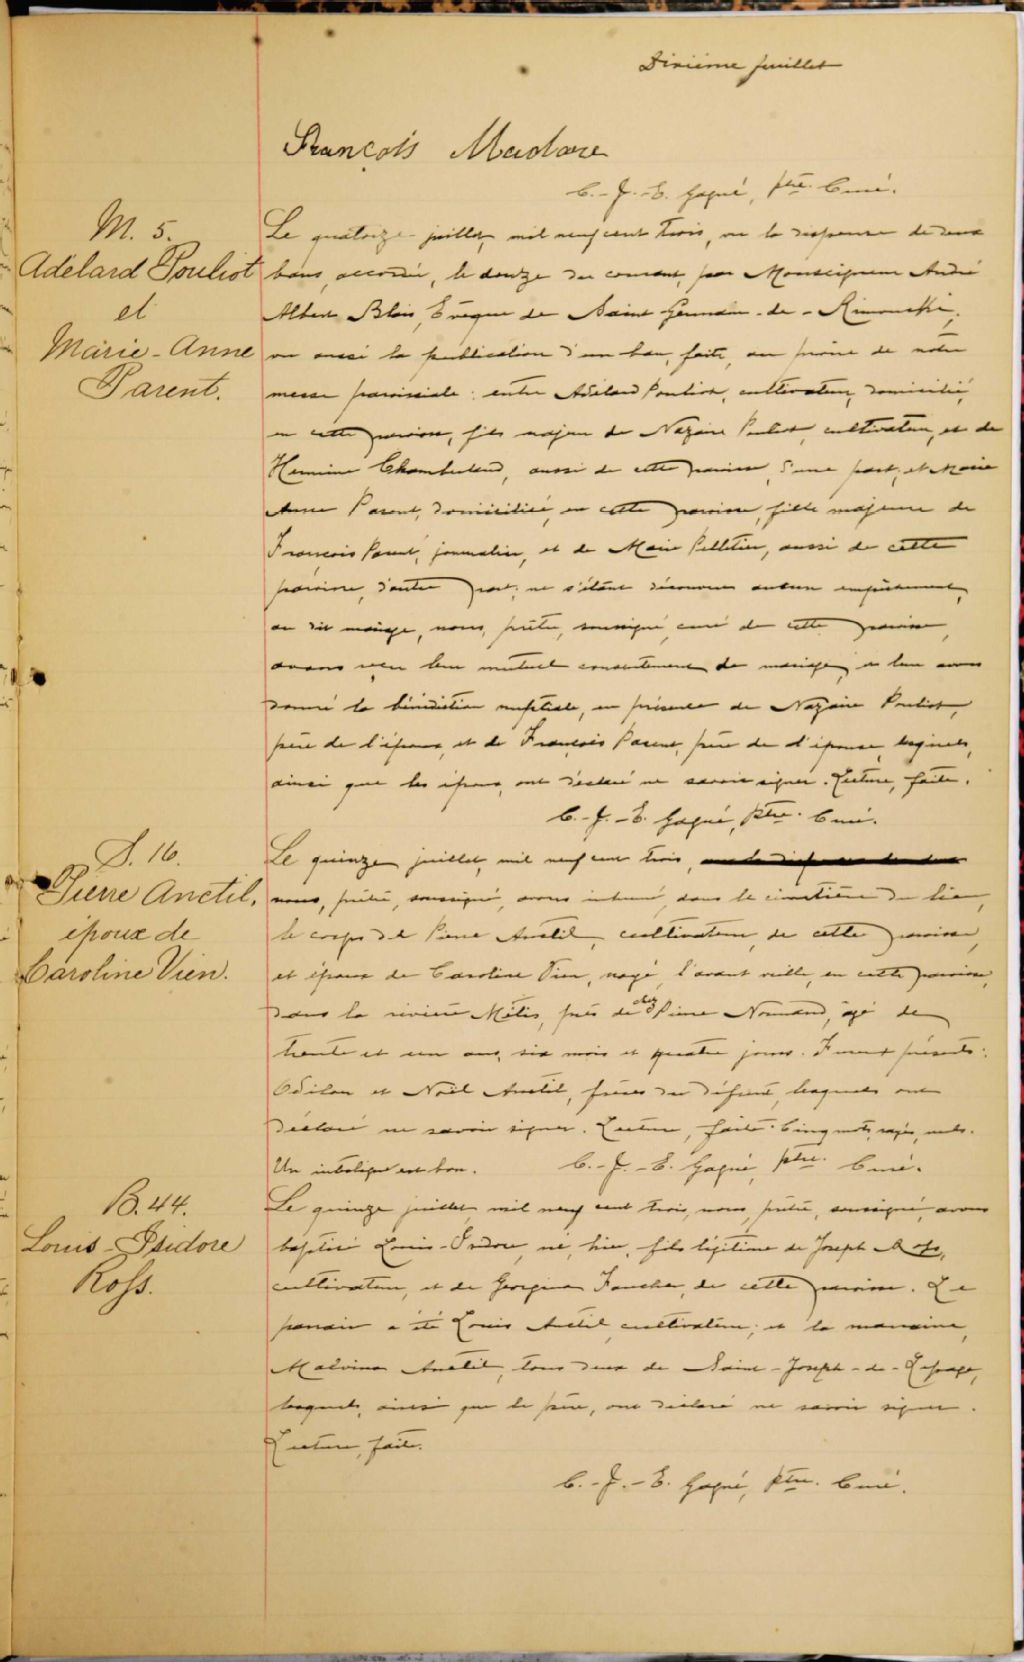 Dixième feuillet
François Madore
C.-J.-E. Gagné, ptre. Curé.
M. 5.
Adélard Pouliot
et
Marie-Anne
Parent.
Le quatorze juillet, mil neuf cent trois, vu la dispense de deux
bans, accordée, le douze du courant, par Monseigneur André
Albert Blais, Evêque de Saint-Germain-de-Rimouski;
vu aussi la publication d'un ban, faite, au prône de notre
messe paroissiale: entre Adélard Pouliot, cultivateur, domicilié,
en cette paroisse, fils majeur de Nazaire Pouliot, cultivateur, et de
Hermine Chamberland, aussi de cette paroisse, d'une part; et Marie
Anne Parent, domiciliée, en cette paroisse, fille majeure de
François Parent, journalier, et de Marie Pelletier, aussi de cette
paroisse, d'autre part; ne s'étant découvert aucun empêchement,
au dit mariage, nous, prêtre, soussigné, curé de cette paroisse,
avons reçu leur mutuel consentement de mariage, et leur avons
donné la bénédiction nuptiale, en présence de Nazaire Pouliot,
père de l'époux, et de François Parent, père de l'épouse, lesquels,
ainsi que les époux, ont déclaré ne savoir signer. Lecture, faite.
C.-J.-E. Gagné, ptre. Curé.
S. 16.
Pierre Anctil,
époux de
Caroline Vien.
Le quinze juillet, mil neuf cent trois, vu la dispense de deux
nous, prêtre, soussigné, avons inhumé, dans le cimetière du lieu,
le corps de Pierre Anctil, cultivateur, de cette paroisse,
et époux de Caroline Vien, noyé, l'avant veille, en cette paroisse,
dans la rivière Métis, près de chez Pierre Normand, âgé de
trente et un ans, six mois et quatre jours. Furent présents:
Odilon et Noël Anctil, frères du défunt, lesquels ont
déclaré ne savoir signer. Lecture, faite. Cinq mots rayés, nuls.
Un interligne est bon. C.-J.-E. Gagné, ptre. Curé.
B. 44.
Louis-Isidore
Ross.
Le quinze juillet, mil neuf cent trois, nous, prêtre, soussigné, avons
baptisé Louis-Isidore, né, hier, fils légitime de Joseph Ross,
cultivateur, et de Georgina Faucher, de cette paroisse. Le
parrain a été Louis Anctil, cultivateur; et la marraine,
Malvina Anctil, tous deux de Saint-Joseph-de-Lepage,
lesquels, ainsi que le père, ont déclaré ne savoir signer.
Lecture, faite.
C.-J.-E. Gagné, ptre. Curé.